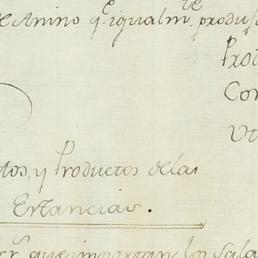 de Amino q.e igualm.te produs
Prod
Con
Ut
tos, y Productos de las
Estancias.
que importan los Sala